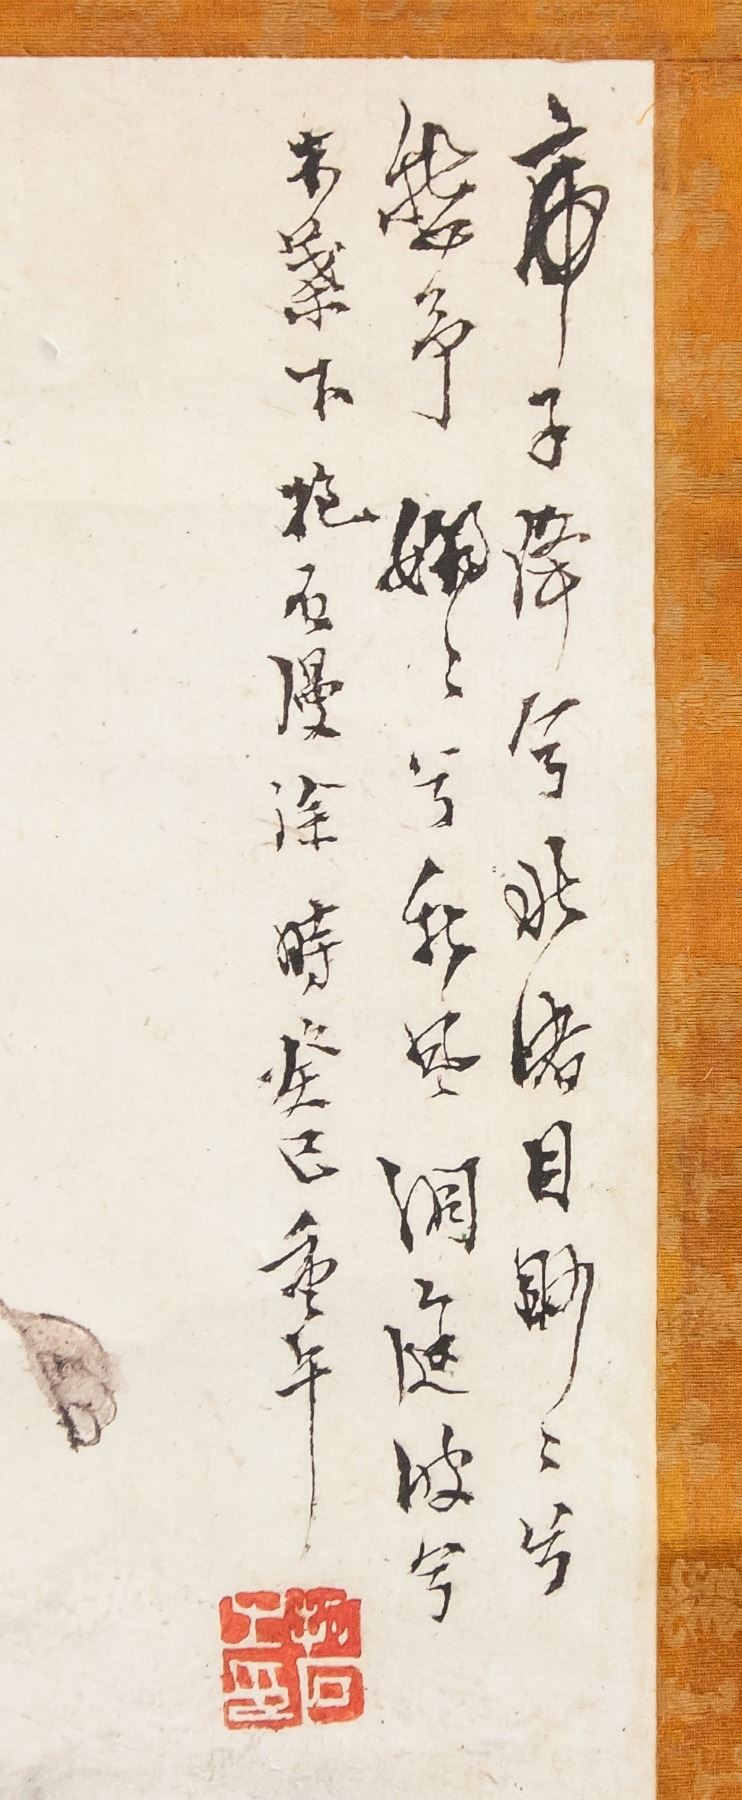 帝子降兮北渚目眇〻兮
愁予嫋〻兮秋風洞庭波兮
木葉下 抱石漫涂 時癸巳重午
抱石之印